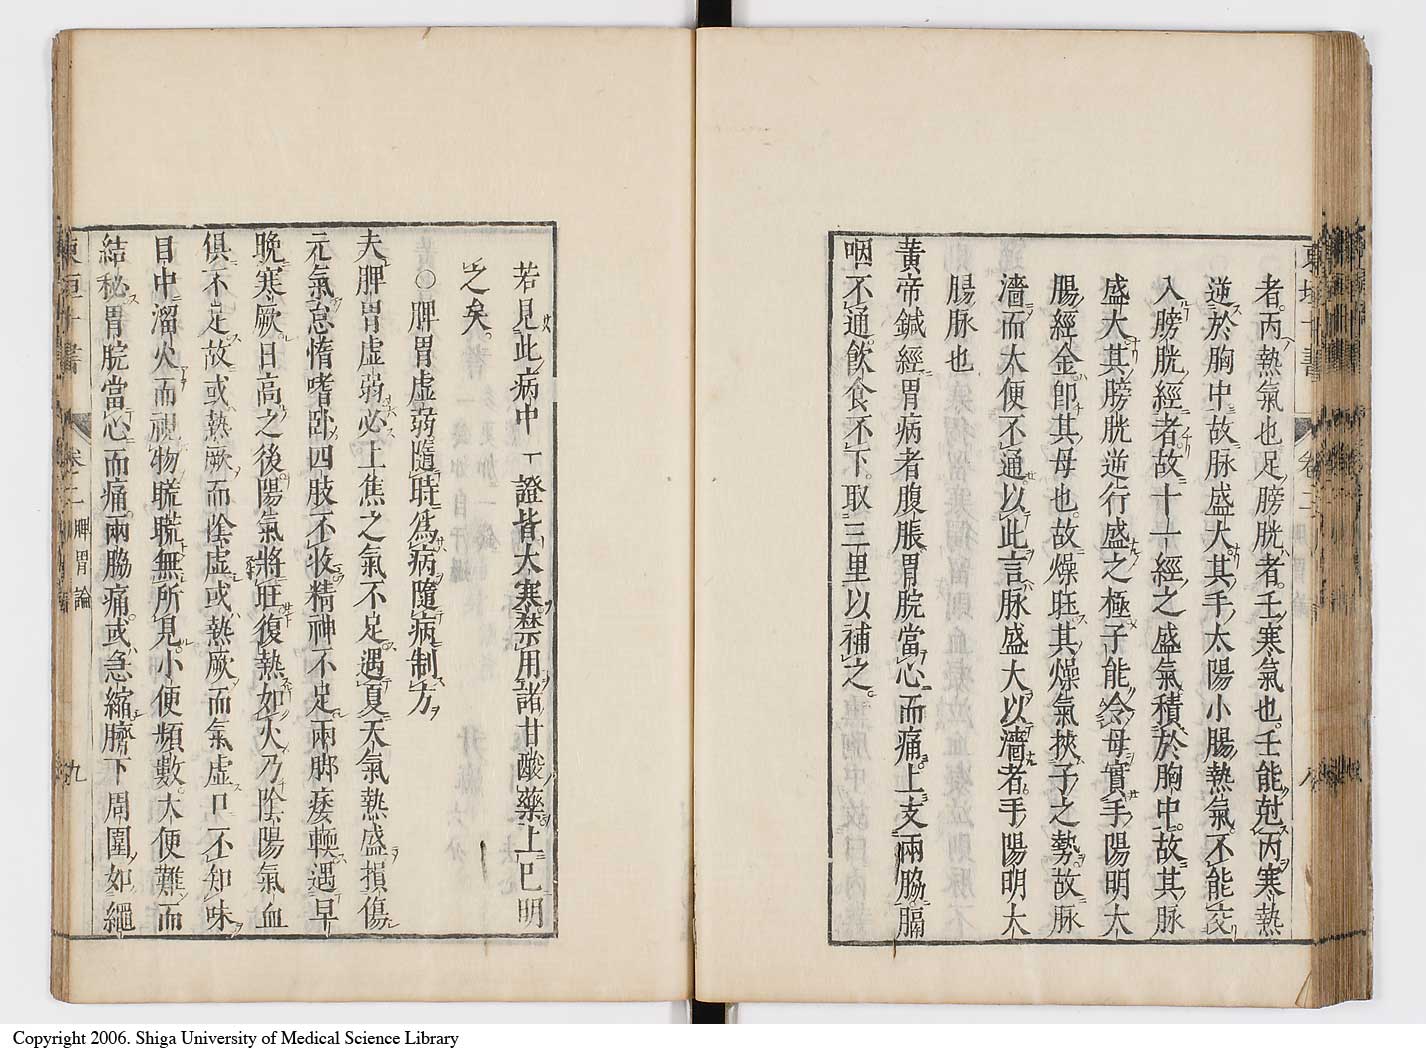 者丙熱氣也足膀胱者壬寒氣也壬能尅丙寒熱
逆於胸中故脉盛大其手太陽小腸熱氣不能交
入膀胱經者故十一經之盛氣積於胸中故其脉
盛大其膀胱逆行盛之極子能令母實手陽明大
腸經金卽其母也故燥旺其燥氣挾子之勢故脉
濇而大便不通以此言脉盛大以濇者手陽明大
腸脉也
黄帝鍼經胃病者腹脹胃脘當心而痛上支兩脇膈
咽不通飲食不下取三里以補之
若見此病中一證皆大寒禁用諸甘酸藥上已明
之矣
○脾胃虚弱隨時爲病隨病制方
夫脾胃虚弱必上焦之氣不足遇夏天氣熱盛損傷
元氣怠惰嗜卧四肢不收精神不足兩脚痿軟遇早
晚寒厥日高之後陽氣將旺復熱如火乃陰陽氣血
俱不足故或熱厥而陰虚或熱厥而氣虚口不知味
目中溜火而視物䀮䀮無所見小便頻數大便難而
結秘胃脘當心而痛兩脇痛或急縮臍下周圍如繩
卷二 脾胃論 九
Copyright 2006. Shiga University of Medical Science Library